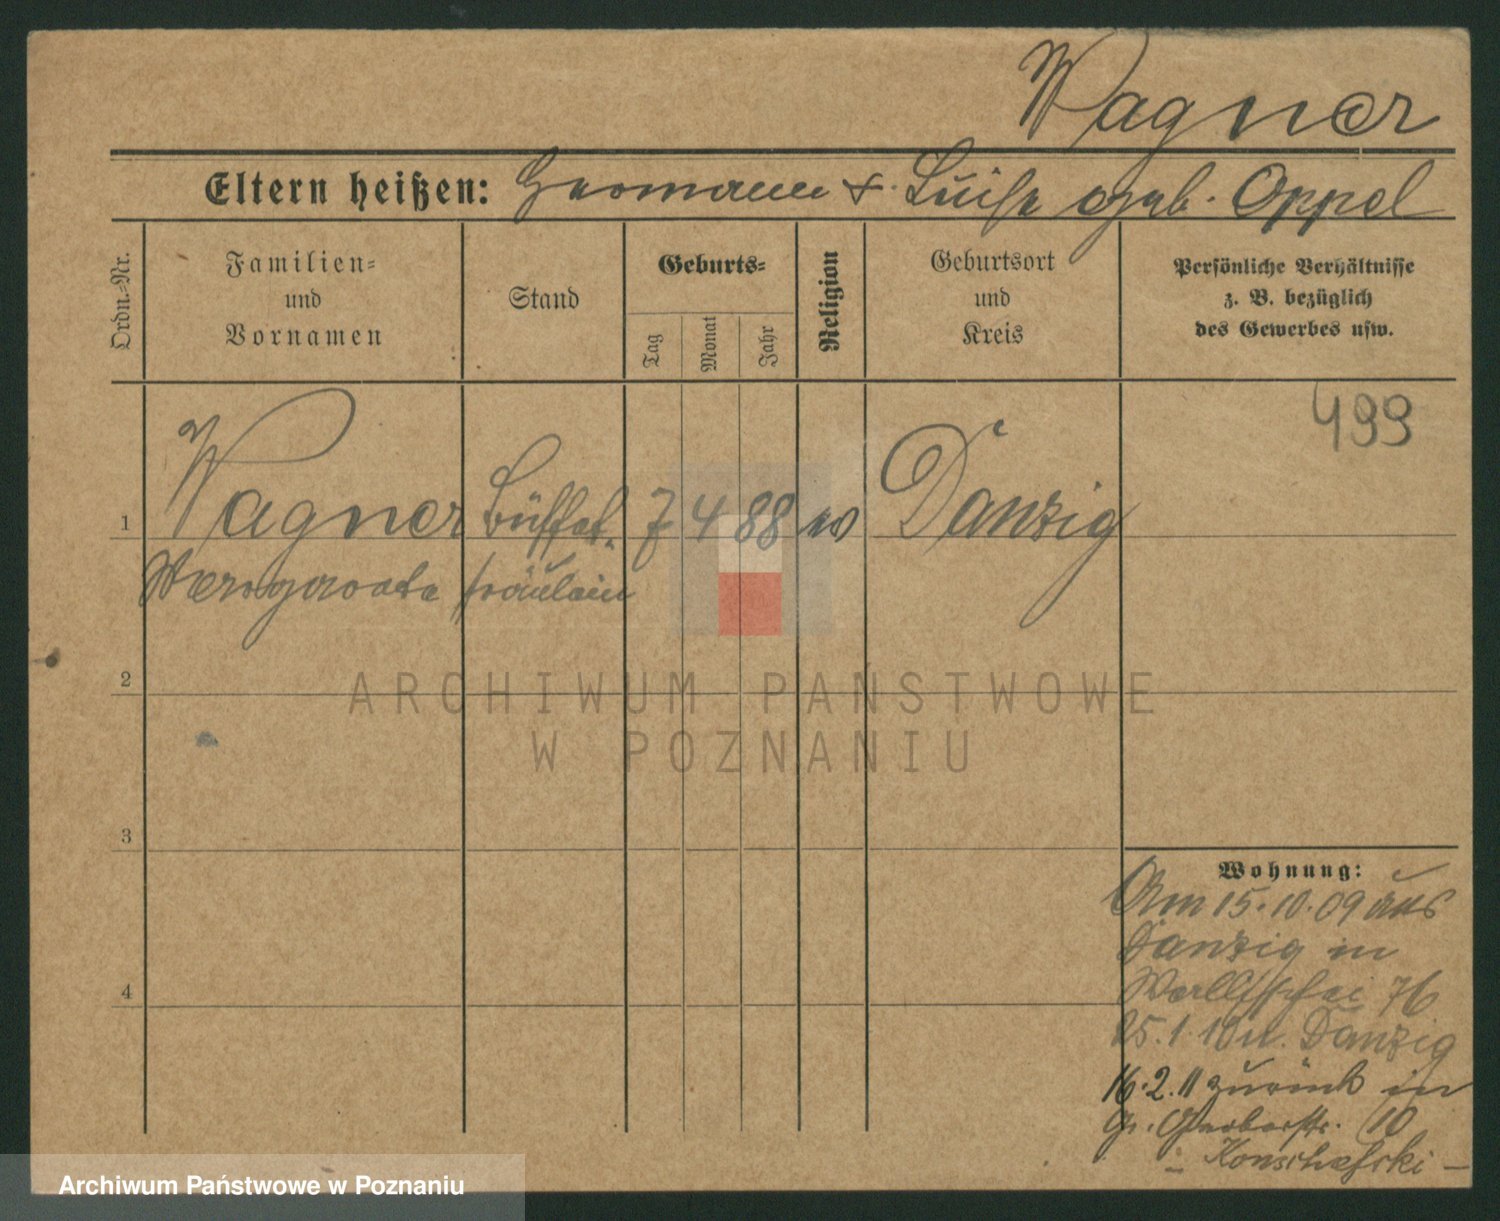 Wagner
Eltern heißen: Hermann & Luise geb. Oppel
Ordn.-Nr.
Familien-
und
Vornamen
Stand
Geburts-
Tag
Monat
Jahr
Religion
Geburtsort
und
Kreis
Persönliche Verhältnisse
z. B. bezüglich
des Gewerbes usw.
499
1 Wagner Büffet- 7 4 88 Danzig
Margarete fräulein
2
3
4
Wohnung:
Am 15.10.09 aus
Danzig in
Wallischei 76
25.1.10 n. Danzig
16.2.11 zurück in
Gr. Gerberstr. 10
- Konschefski -
ARCHIWUM PAŃSTWOWE
W POZNANIU
Archiwum Państwowe w Poznaniu